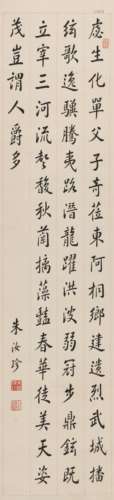 虙生化單父子奇莅東阿桐鄉建遺烈武城播
弦歌逸驥騰夷路潛龍躍洪波弱冠步鼎鉉既
立宰三河流聲馥秋蘭摛藻豔春華徒美天姿
茂豈謂人爵多
朱汝珍